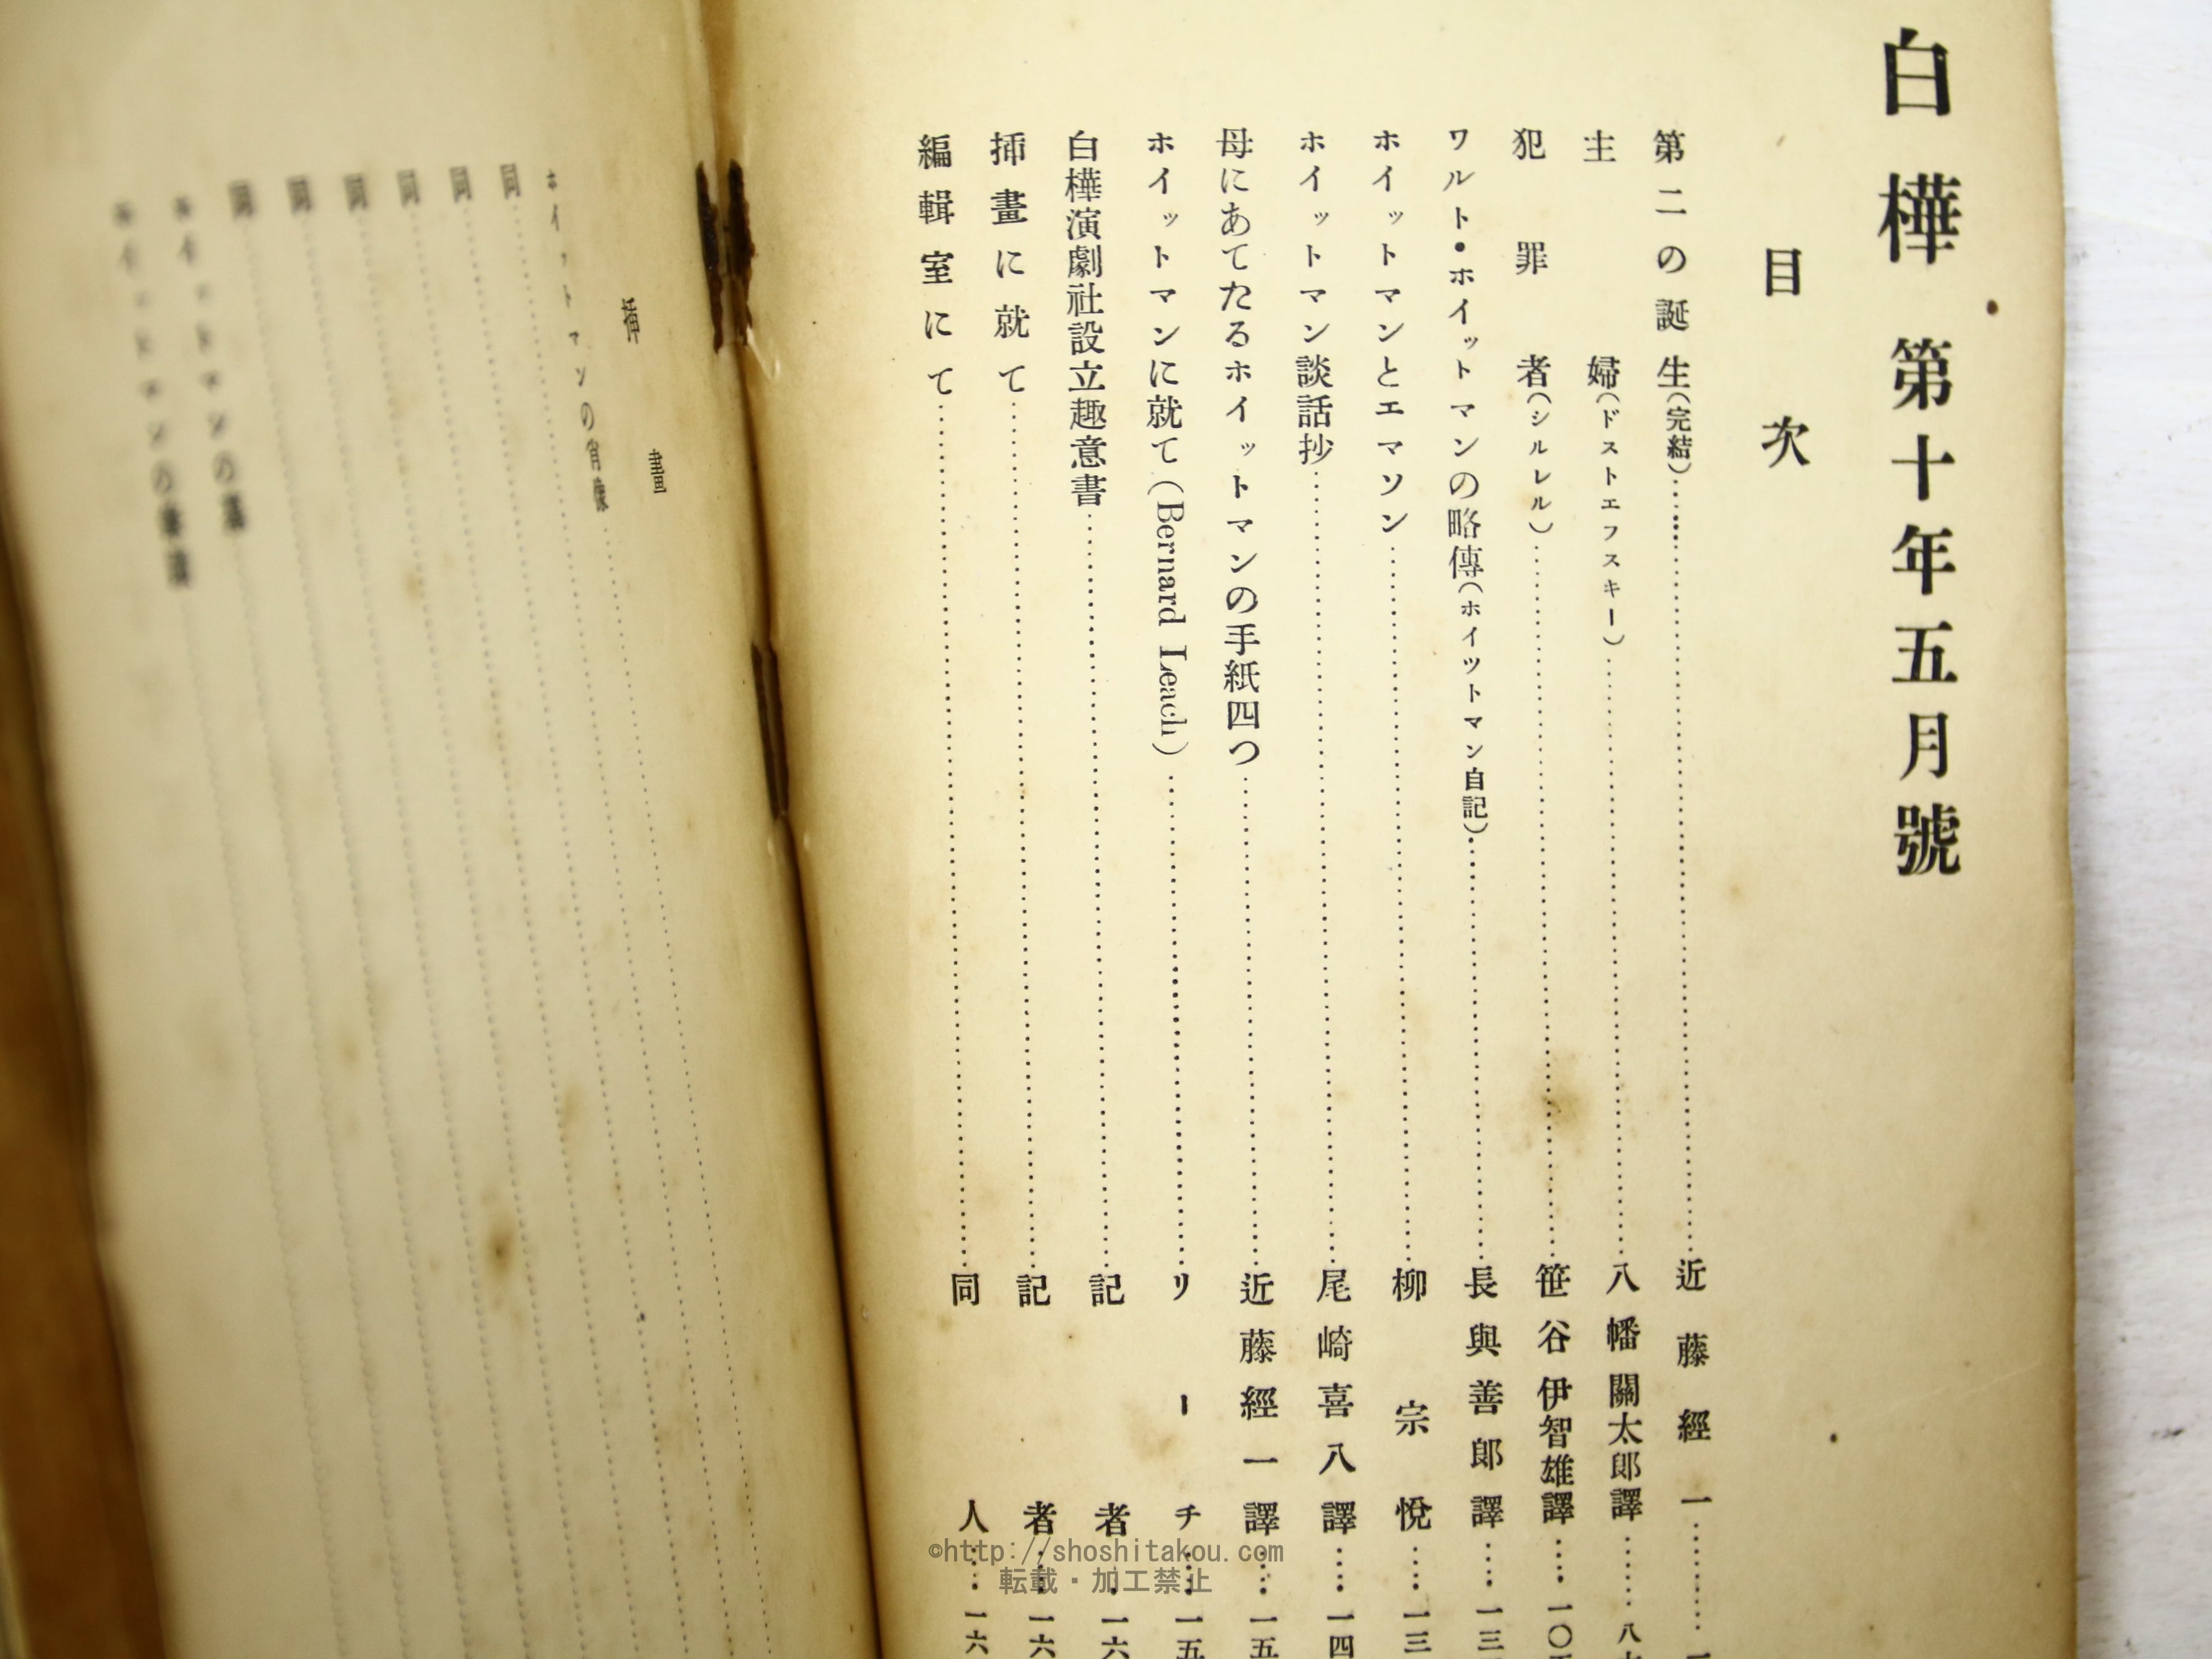 白樺 第十年五月號
目次
第二の誕生(完結)……近藤經一……
主婦(ドストエフスキー)……八幡關太郎譯……八
犯罪者(シルレル)……笹谷伊智雄譯……一〇
ワルト・ホイットマンの略傳(ホイツトマン自記)……長與善郎譯……一三
ホイットマンとエマソン……柳宗悅……一三
ホイットマン談話抄……尾崎喜八譯……一四
母にあてたるホイットマンの手紙四つ……近藤經一譯……一五
ホイットマンに就て(Bernard Leach)……リーチ……一五
白樺演劇社設立趣意書……記者……一六
挿畫に就て……記者……一六
編輯室にて……同人……一六
挿畫
ホイットマンの肖像……
同……
同……
同……
同……
同……
同……
©http://shoshitakou.com
転載・加工禁止